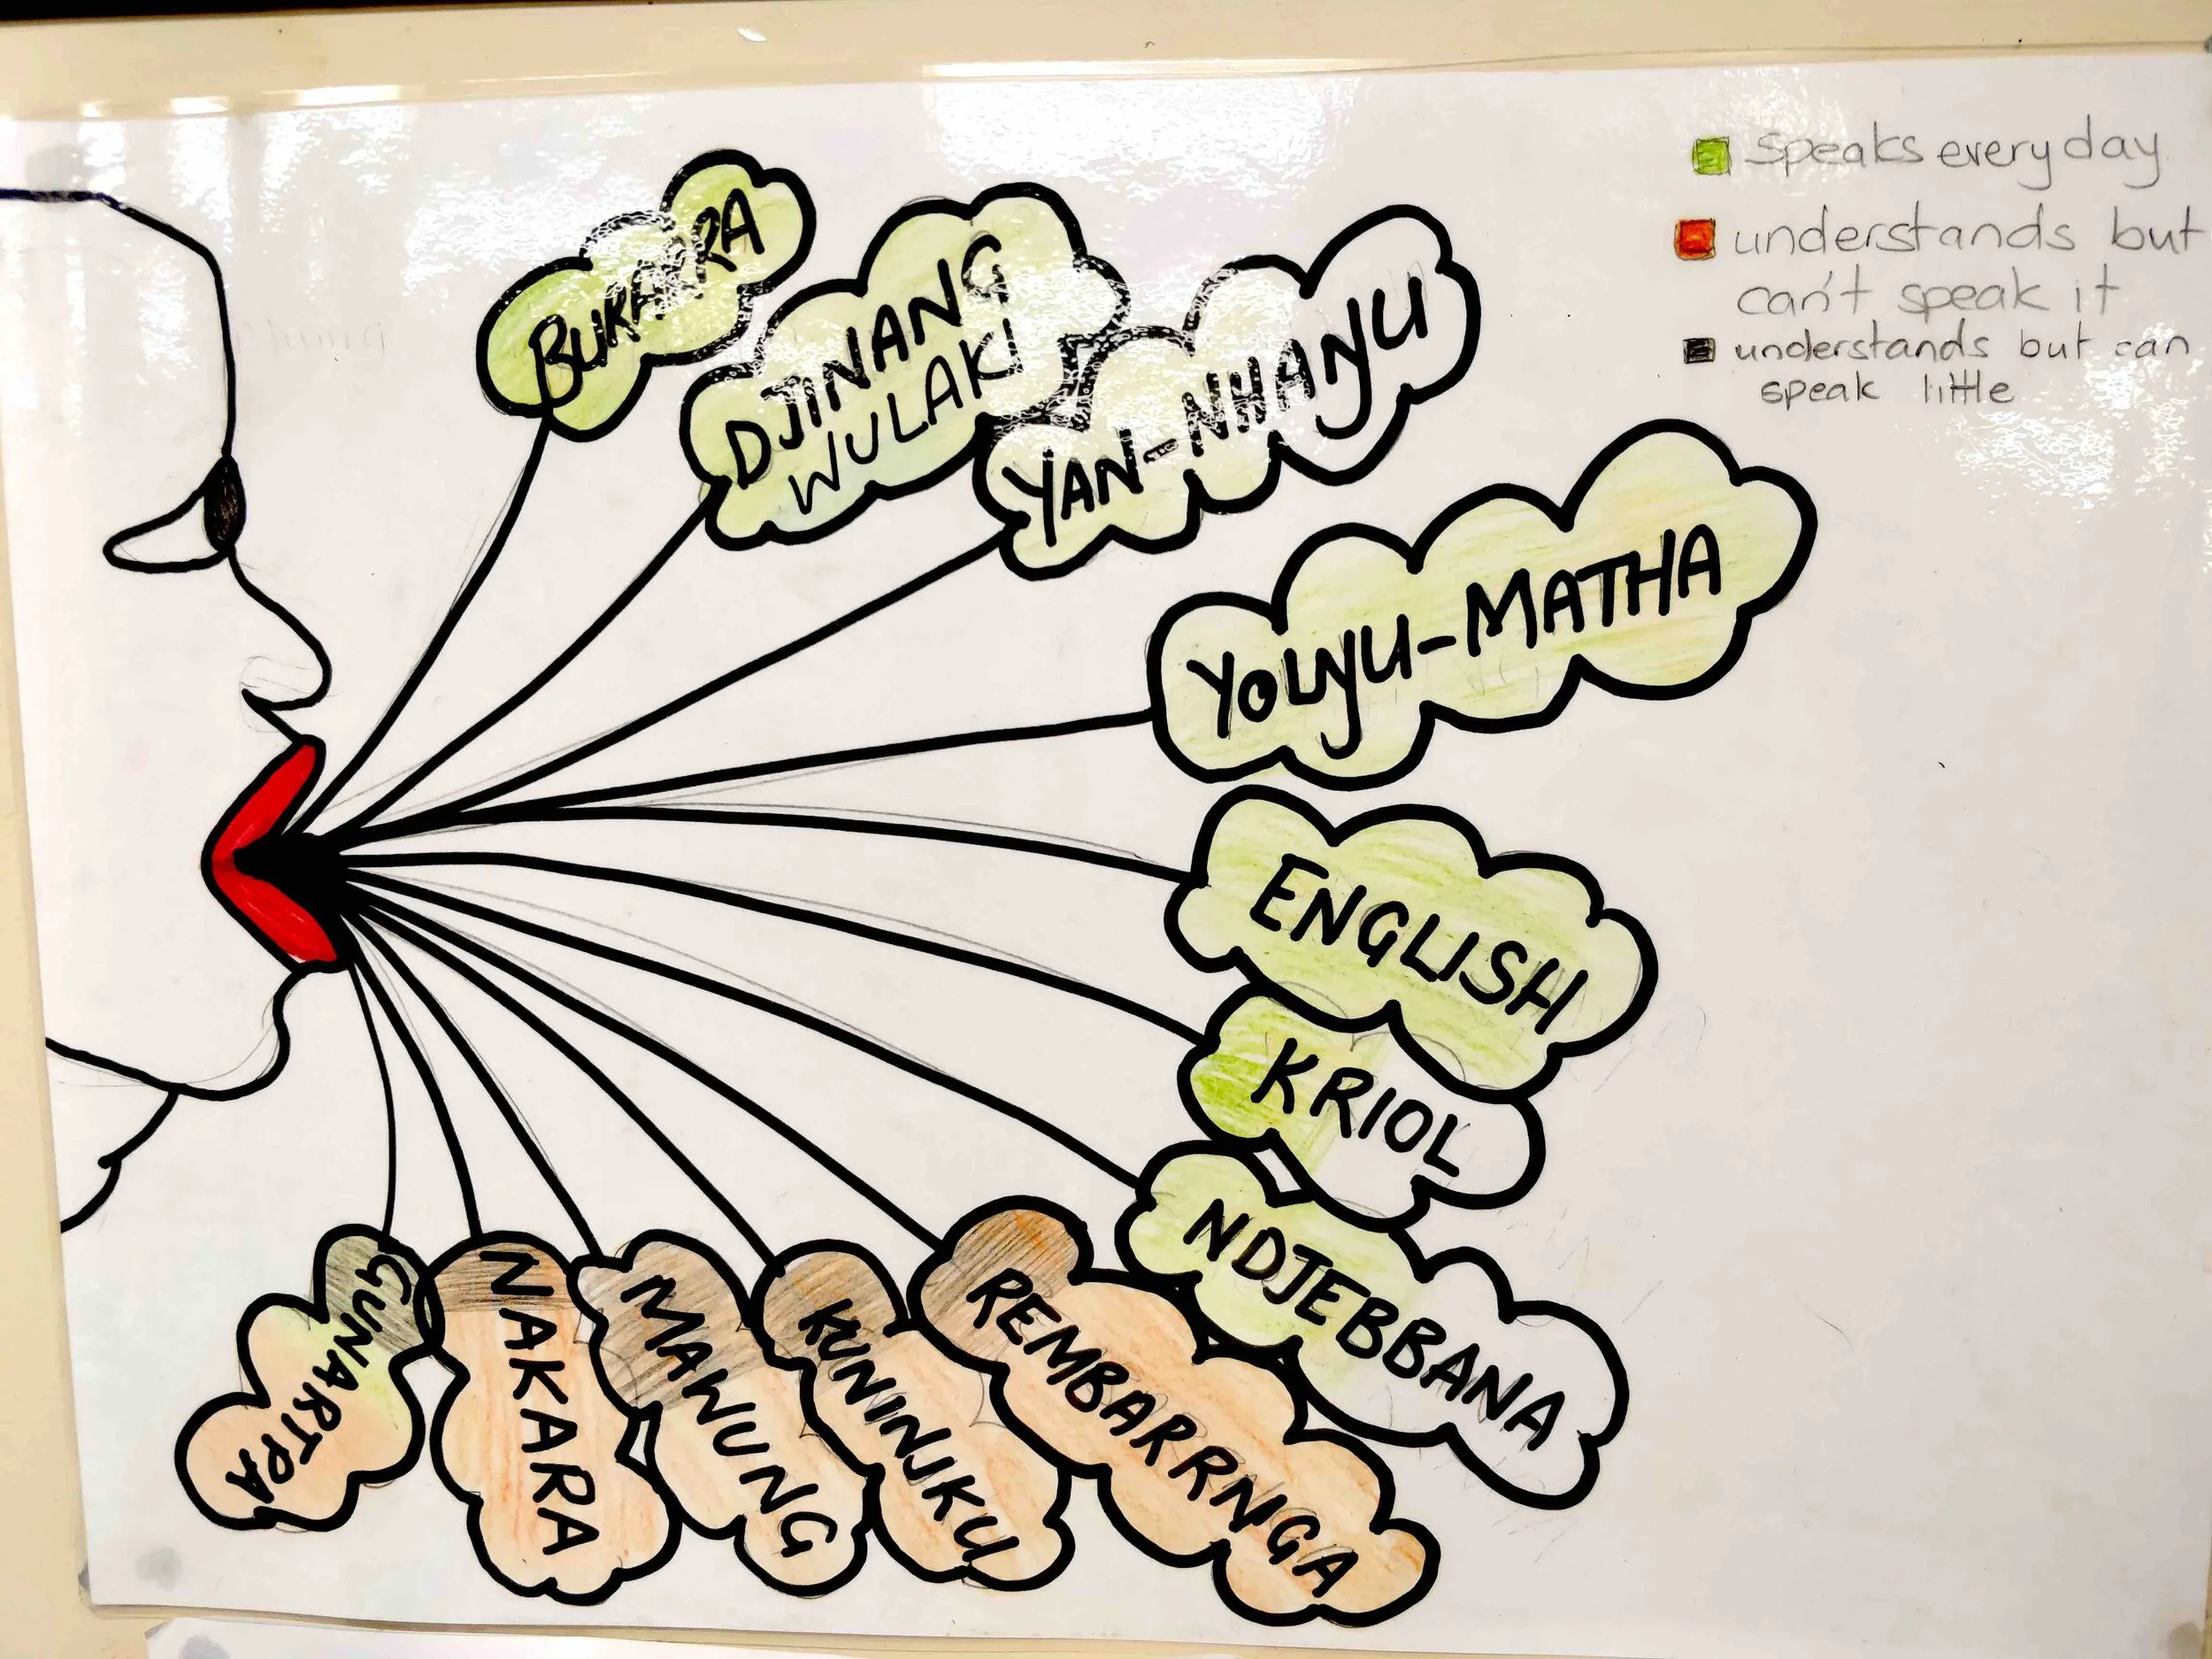 speaks everyday
understands but
can't speak it
understands but can
speak little
BURARRA
DJINANG
WULAKI
YAN-NHAŊU
YOLŊU-MATHA
ENGLISH
KRIOL
NDJEBBANA
REMBARRNGA
KUNINJKU
MAWUNG
NAKARA
GUNARTPA